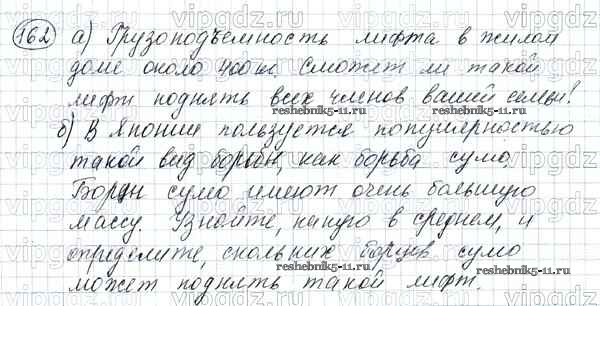 162 а) Грузоподъемность лифта в жилом
доме около 400 кг. Сможет ли такой
лифт поднять всех членов вашей семьи?
reshebnik5-11.ru
б) В Японии пользуется популярностью
такой вид борьбы, как борьба сумо.
Борцы сумо имеют очень большую
массу. Узнайте, какую в среднем, и
определите, скольких борцов сумо
reshebnik5-11.ru reshebnik5-11.ru
может поднять такой лифт.
vipgdz.ru